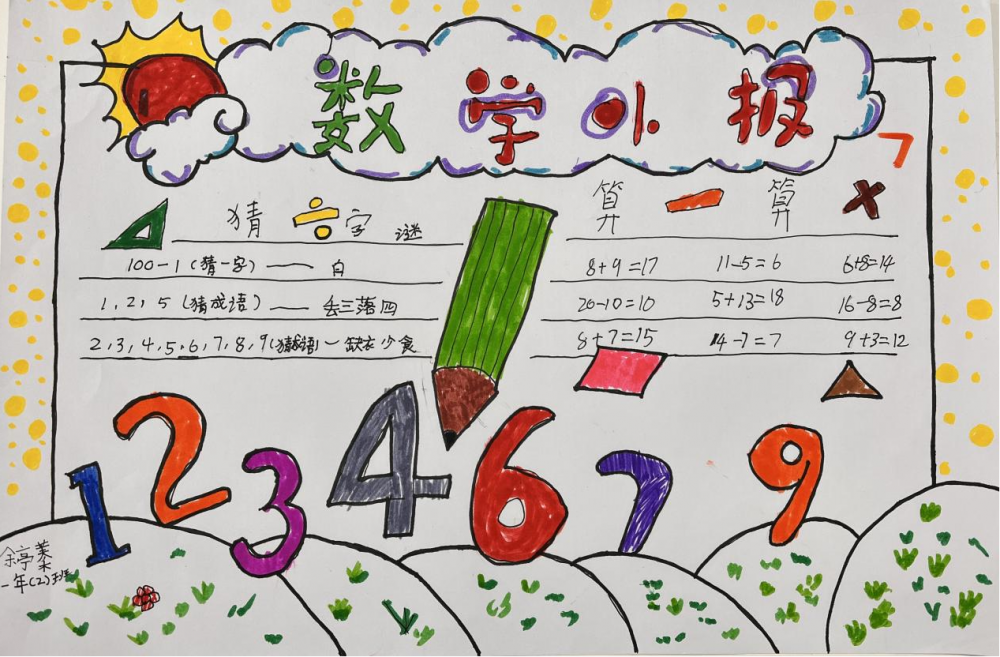 数学小报
猜字谜
100-1(猜一字)——白
1,2,5(猜成语)——丢三落四
2,3,4,5,6,7,8,9(猜成语)—缺衣少食
算一算
8+9=17 11-5=6 6+8=14
20-10=10 5+13=18 16-8=8
8+7=15 14-7=7 9+3=12
1 2 3 4 6 7 9
一年(2)班